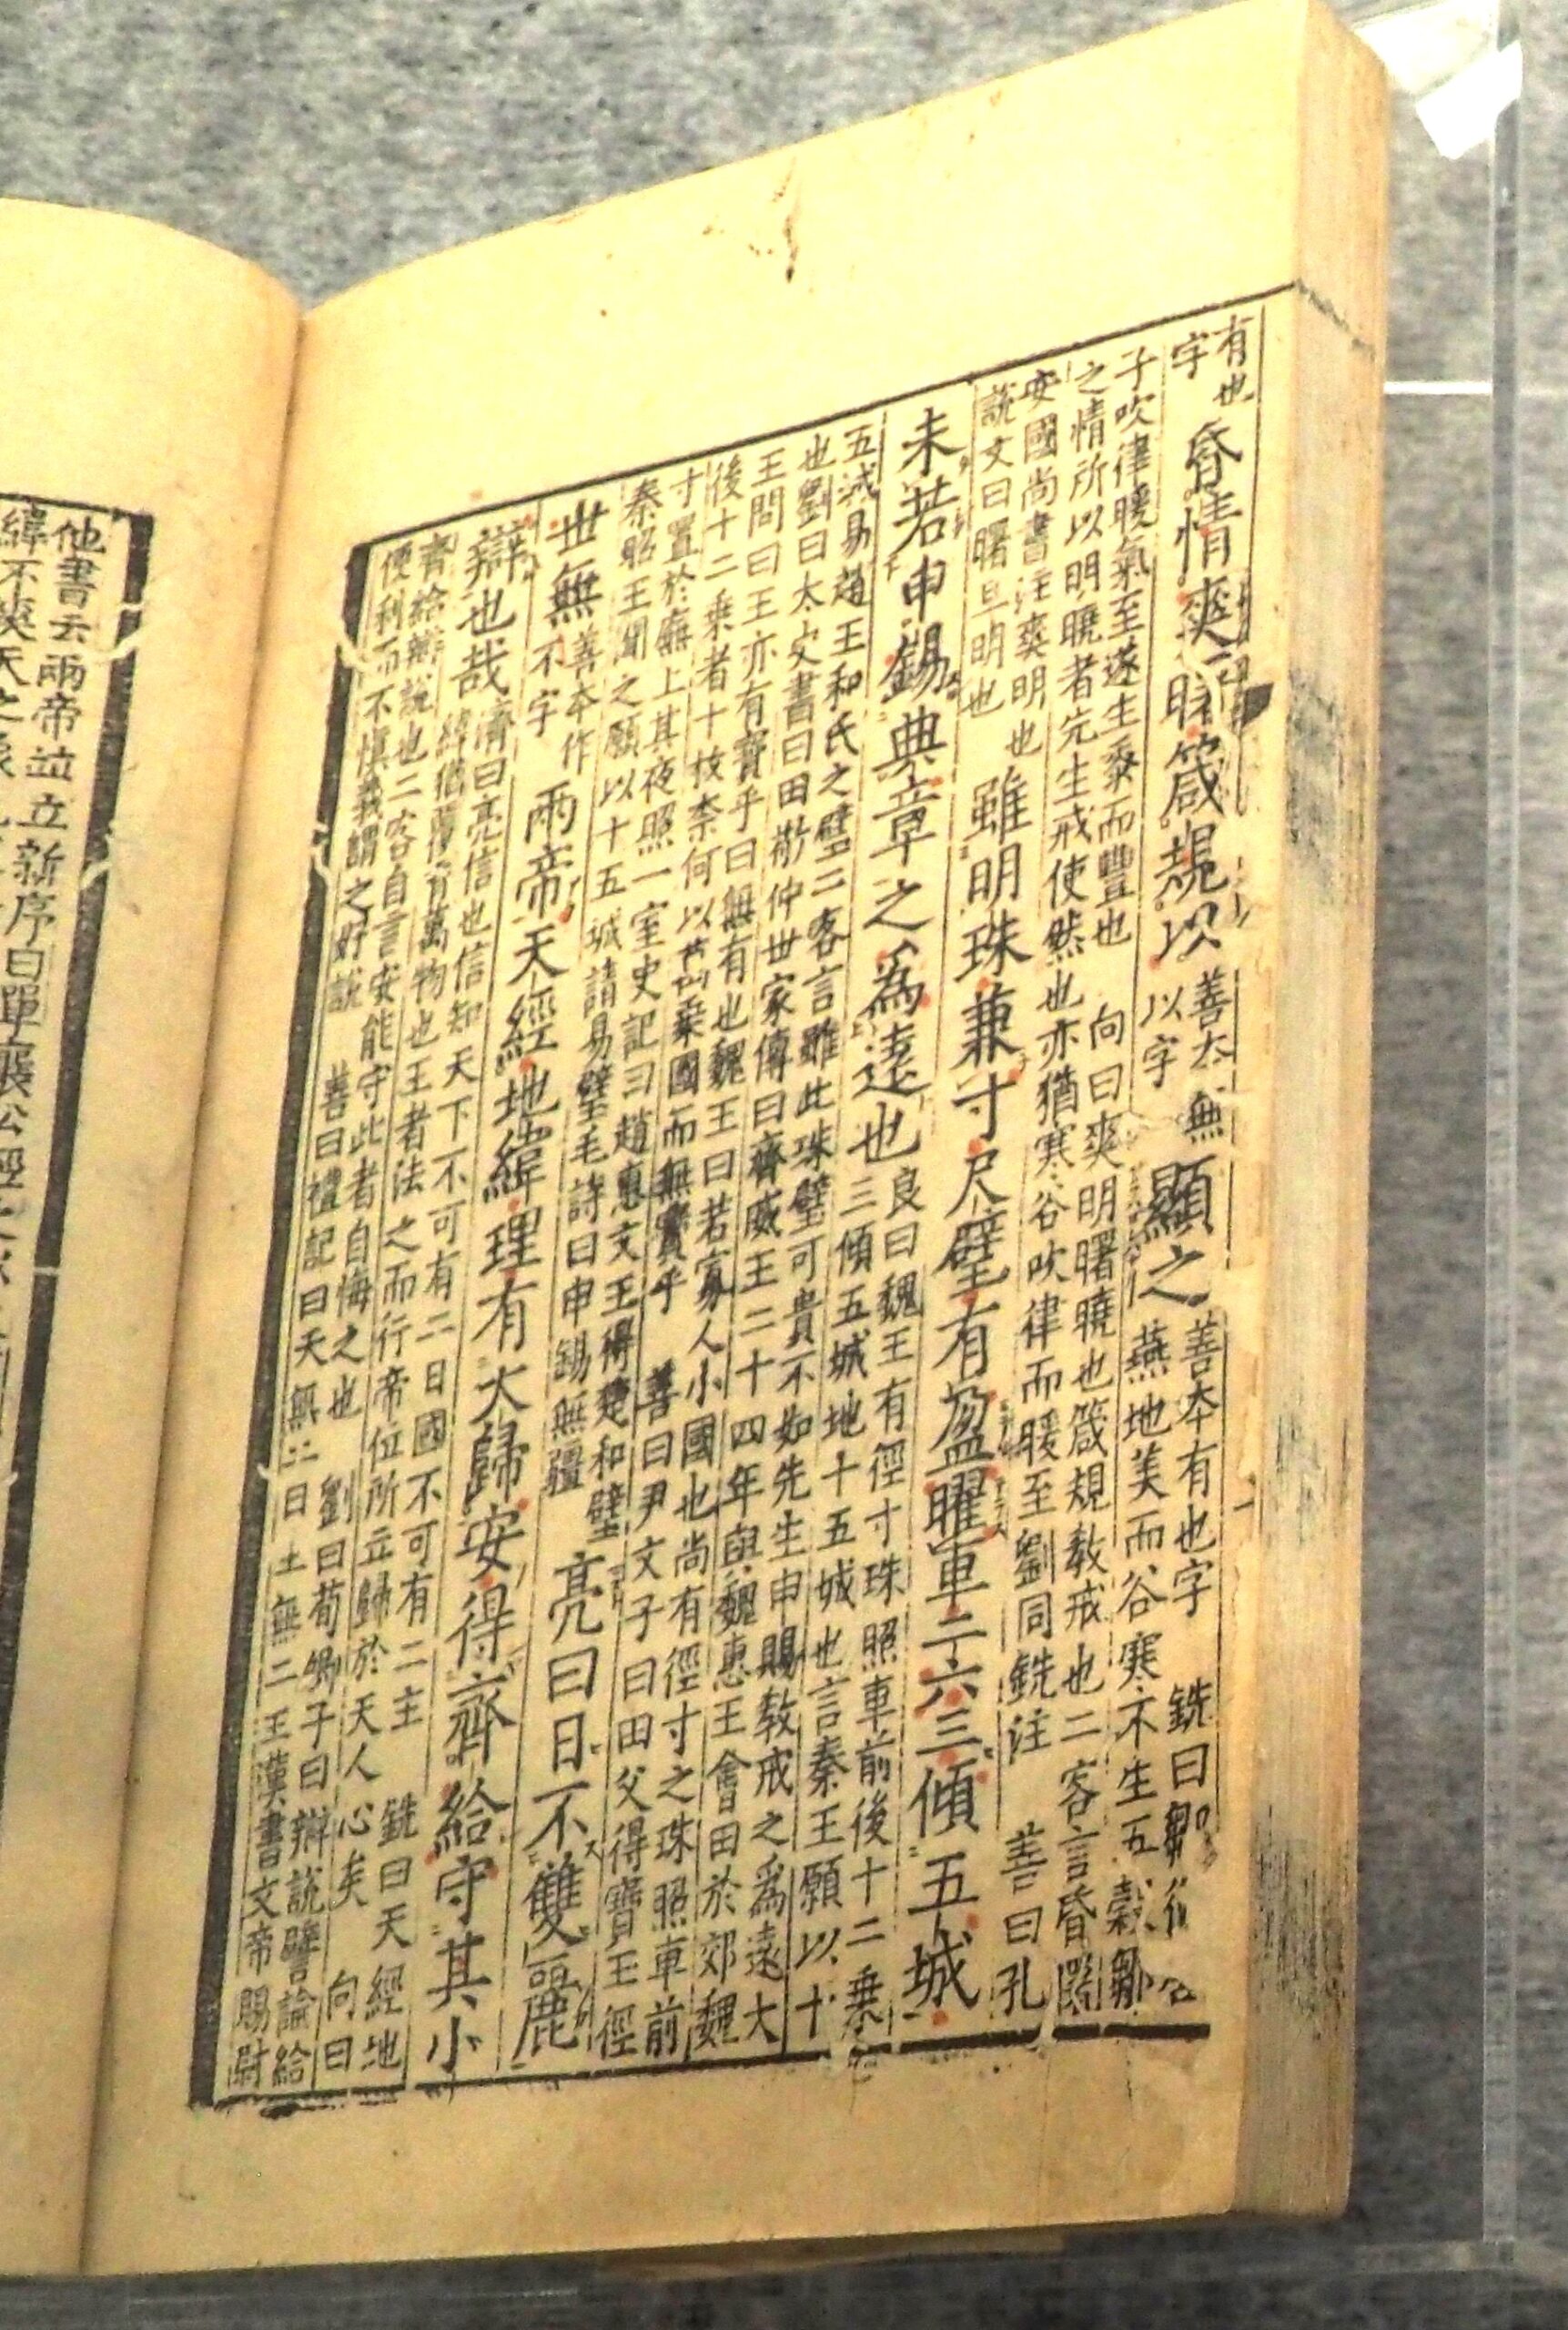 有也
字
昏情爽曙箴規以
善本無
以字
顯之
善本有也字
銑曰鄒衍
燕地美而谷寒不生五穀鄒
子吹律暖氣至遂生黍而豐也
向曰爽明曙曉也箴規教戒也二客言昏闇
之情所以明曉者先生戒使然也亦猶寒谷吹律而暖至劉同銑注
善曰孔
安國尚書注爽明也
說文曰曙旦明也
雖明珠兼寸尺璧有盈曜車二六三傾五城
未若申錫典章之為遠也
良曰魏王有徑寸珠照車前後十二乗
三傾五城地十五城也言秦王願以十
五城易趙王和氏之璧二客言雖此珠璧可貴不如先生申賜教戒之為遠大
也劉曰太史書曰田敬仲世家傳曰齊威王二十四年與魏惠王會田於郊魏
王問曰王亦有寶乎曰無有也魏王曰若寡人小國也尚有徑寸之珠照車前
後十二乗者十枚柰何以萬乗國而無寶乎
善曰尹文子曰田父得寶玉徑
寸置於廡上其夜照一室史記曰趙惠文王得楚和璧
秦昭王聞之願以十五城請易璧毛詩曰申錫無疆
亮曰日不雙麗
世無
善本作
不字
兩帝天經地緯理有大歸安得齊給守其小
辯也哉
濟曰亮信也信知天下不可有二日國不可有二主
銑曰天經地
緯猶覆育萬物也王者法之而行帝位所立歸於天人心矣
向曰
齊給辯說也二客自言安能守此者自悔之也
劉曰荀卿子曰辯說譬論給
便利而不慎義謂之好說
善曰禮記曰天無二日土無二王漢書文帝賜尉
他書云兩帝竝立新序曰單襄公
緯不爽天之